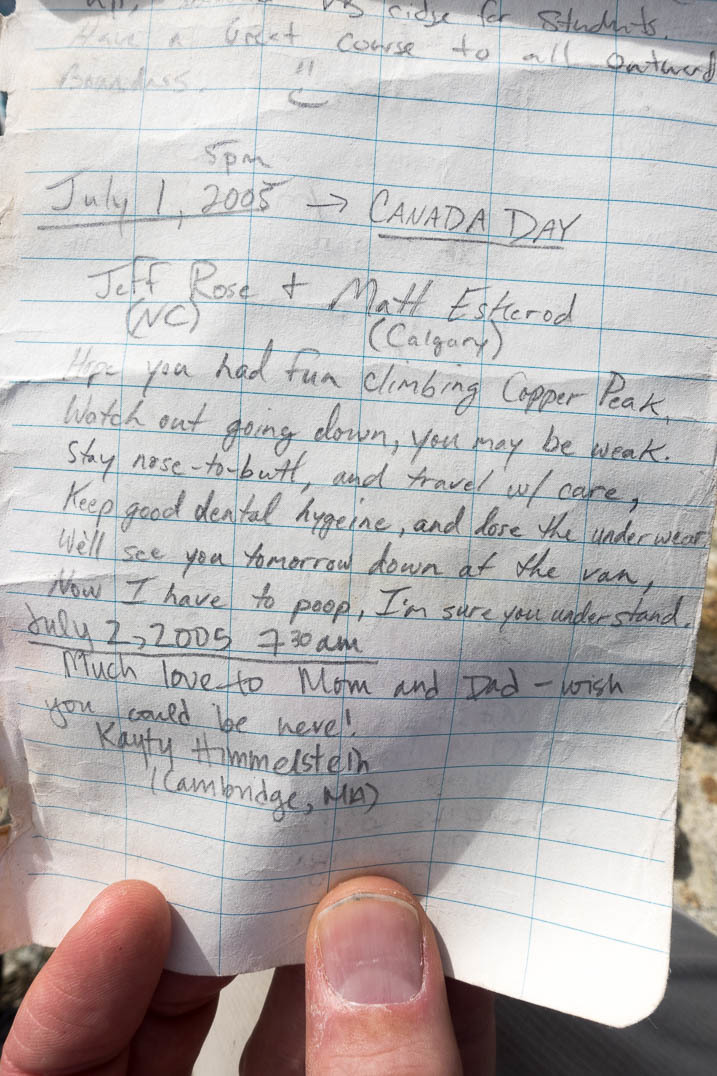 ridge for students.
Have a Great course to all outward
Boanders.
5pm
July 1, 2005 → CANADA DAY
Jeff Rose + Matt Eskerod
(NC) (Calgary)
Hope you had fun climbing Copper Peak,
Watch out going down, you may be weak.
Stay nose-to-butt, and travel w/ care,
Keep good dental hygeine, and lose the underwear
We'll see you tomorrow down at the van,
Now I have to poop, I'm sure you understand.
July 2, 2005 7 30 am
Much love to Mom and Dad - wish
you could be here!
Kayty Himmelstein
(Cambridge, MA)